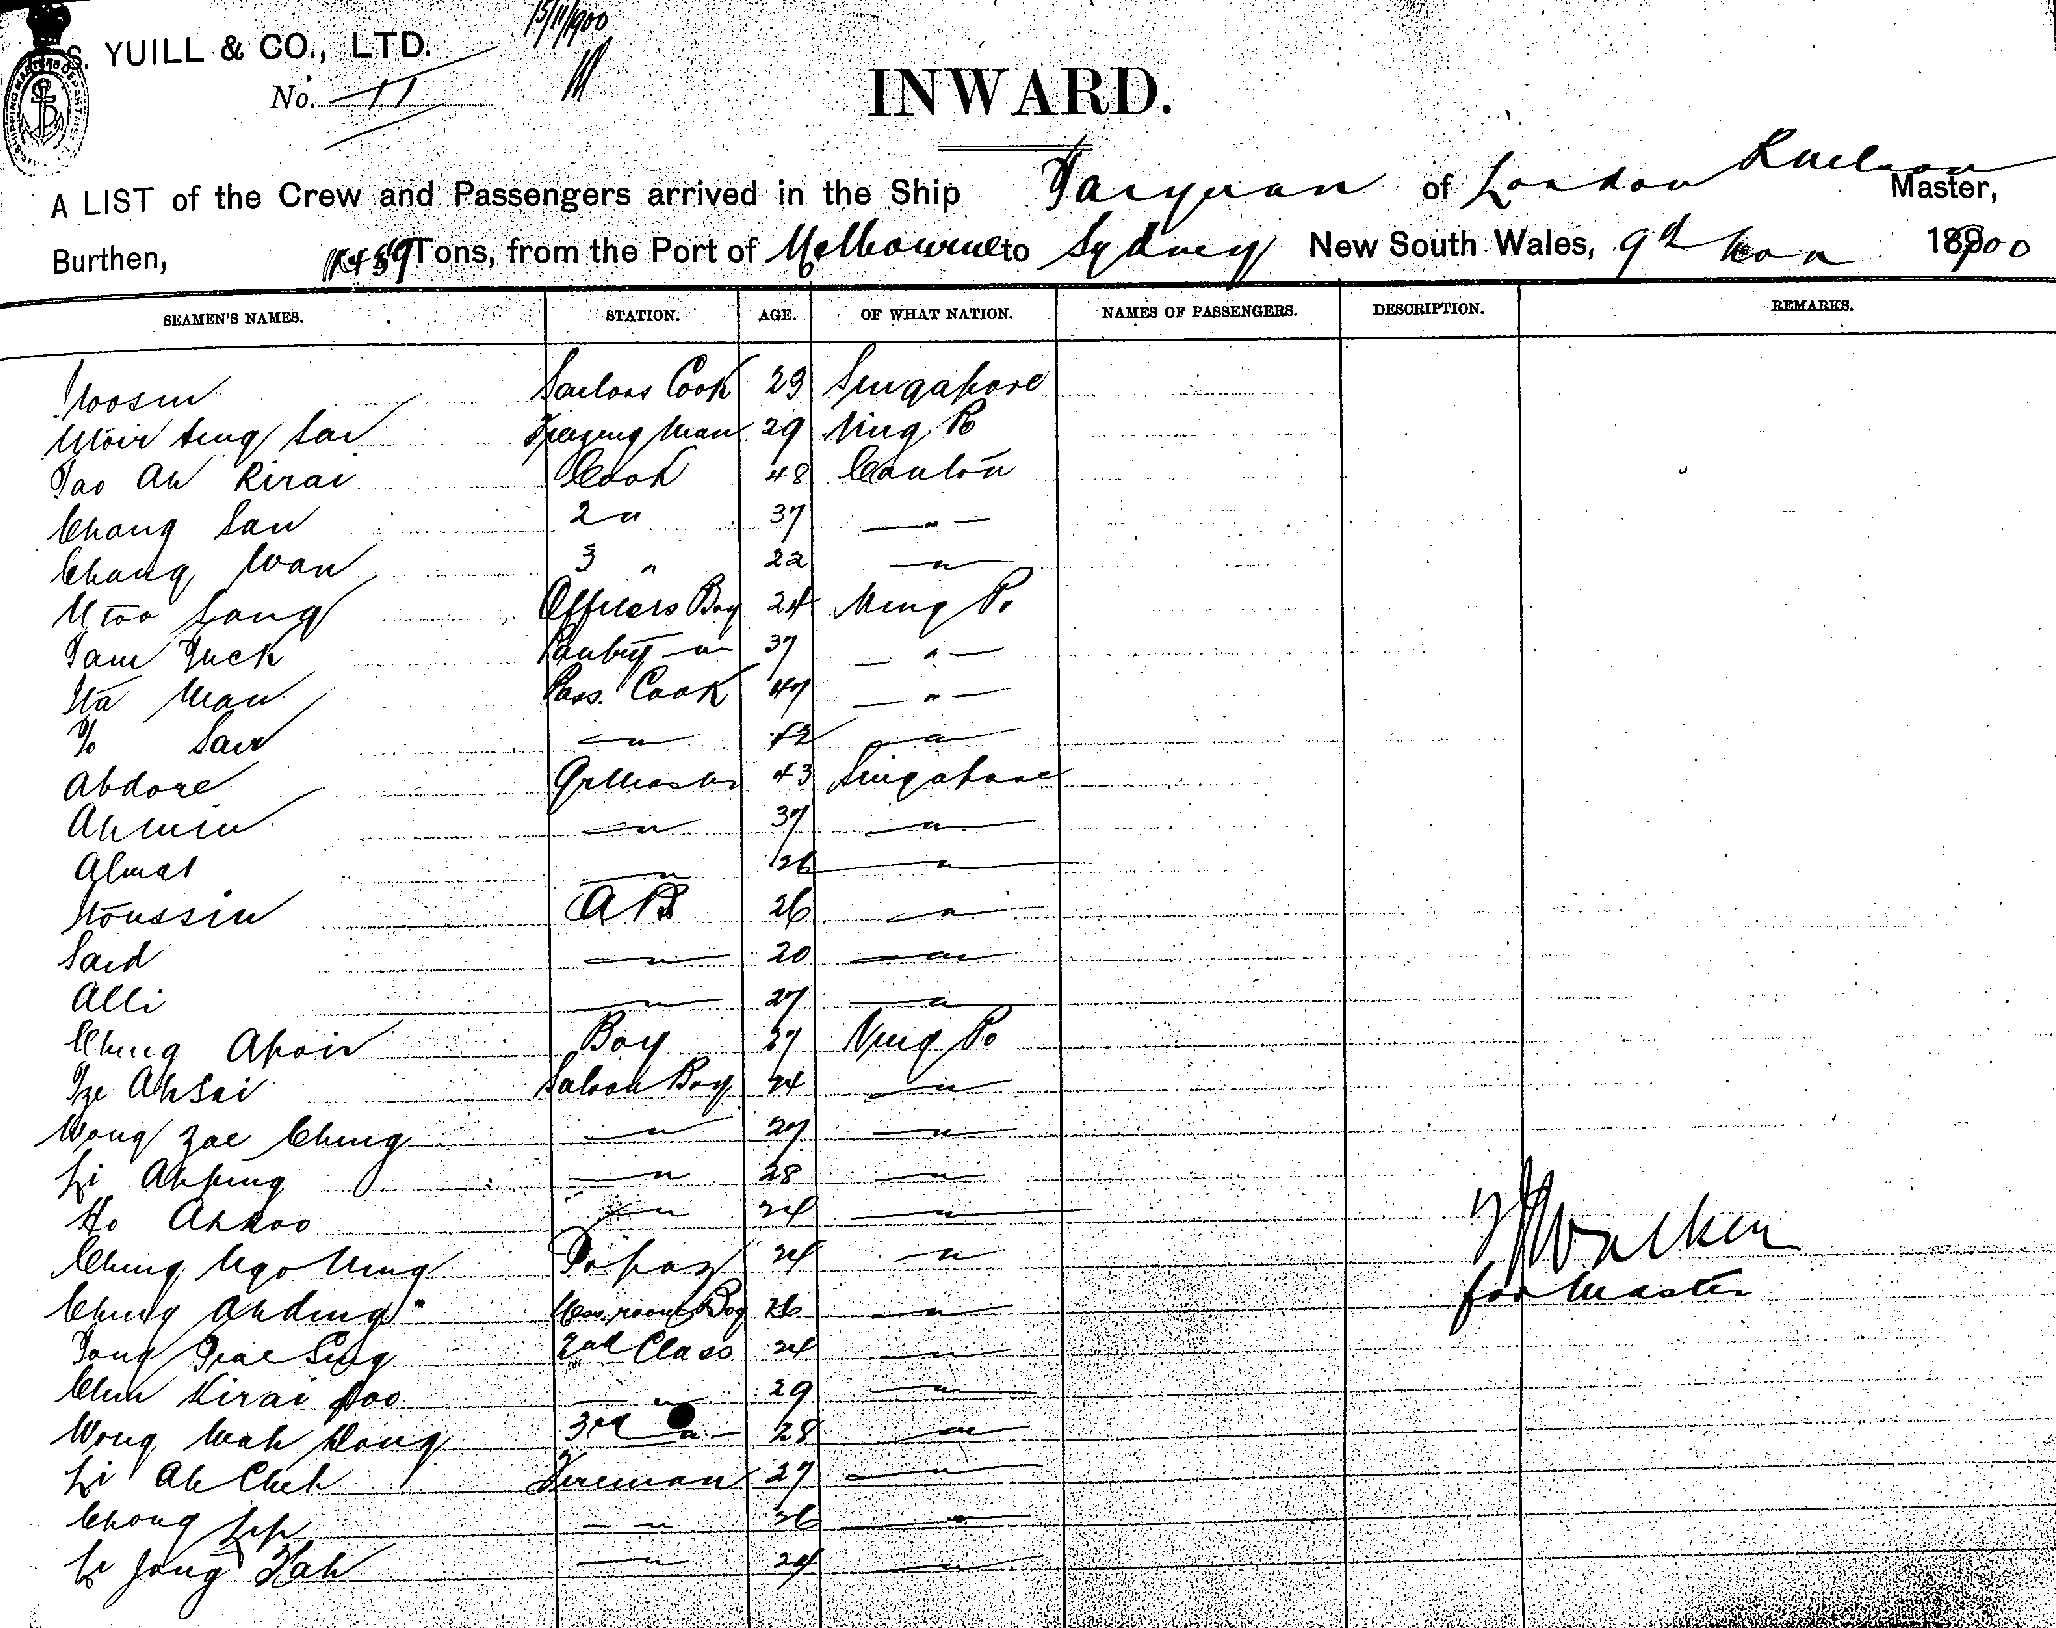 S. YUILL & CO., LTD.
15/11/1900
No. 11
INWARD.
A LIST of the Crew and Passengers arrived in the Ship Taiyuan of London Master,
Burthen, 1459 Tons, from the Port of Melbourne to Sydney New South Wales, 9th Nov 1900
SEAMEN'S NAMES. STATION. AGE. OF WHAT NATION. NAMES OF PASSENGERS. DESCRIPTION. REMARKS.
Sailors Cook 23 Singapore
29 Ning Po
Tao Ah Kirai Cook 48 Canton
Chang San 2 " 37 — " —
Chang Wan 3 " 22 — " —
Song Officers Boy 24 Ning Po
Tam Tuck Pantry — " — 37 — " —
Ha Man Pass. Cook 47 — " —
Yo San — " — 42 — " —
Abdore Qr Master 43 Singapore
Ahmin — " — 37 — " —
Almat — " — 26 — " —
Houssin AB 26 — " —
Said — " — 20 — " —
Alli — " — 27 — " —
Ching Apoir Boy 37 Ning Po
Tze Ahsai Saloon Boy 24 — " —
Wong Zae Ching — " — 27 — " —
Li Ahping — " — 28 — " —
Ho Ahkoo — " — 24 — " —
Walker
Ching Ngo Ning Topaz 24 — " —
for Master
Ching Ahding Mess room Boy 26 — " —
Tong Tiae Sing 2nd Class 24 — " —
Chin Kirai Foo — " — 29 — " —
Wong Wah Kong 3rd — " — 28 — " —
Li Ah Cheh Fireman 27 — " —
Chong — " — 36 — " —
Li Jong Hah — " — 24 — " —